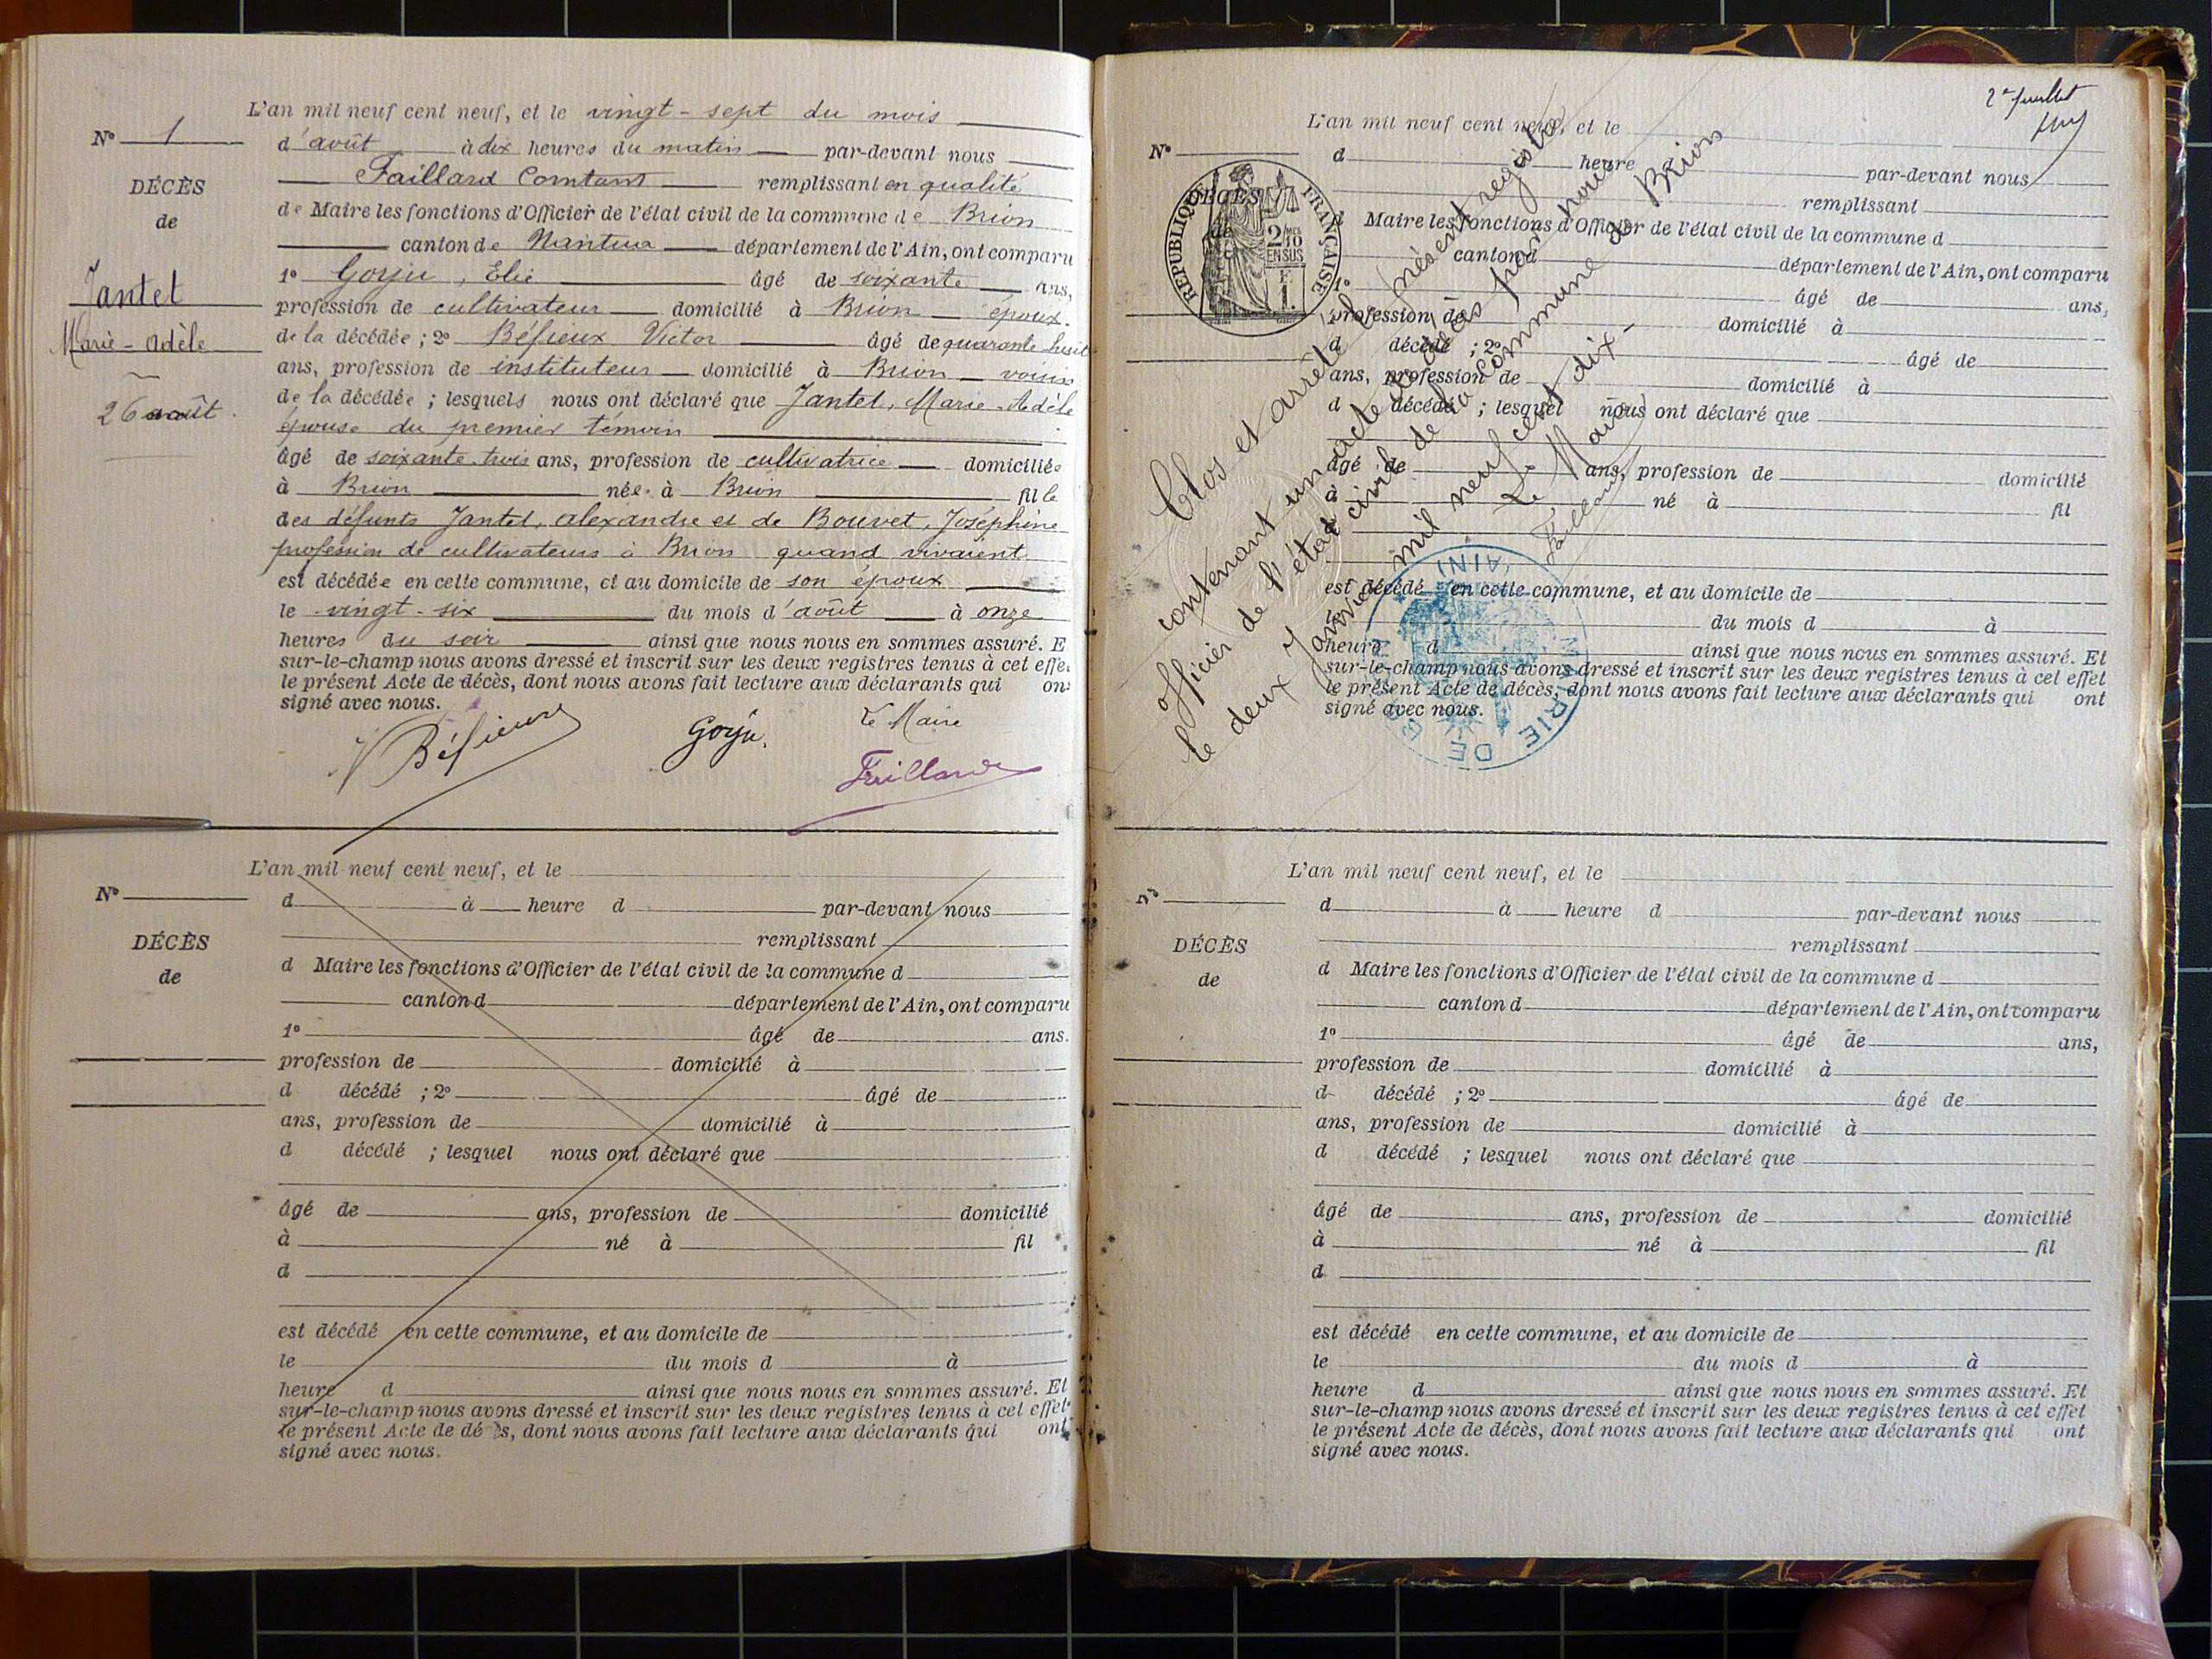 L'an mil neuf cent neuf, et le vingt-sept du mois
N° 1
d'août à dix heures du matin par-devant nous
Faillard Constant remplissant en qualité
DÉCÈS
de Maire les fonctions d'Officier de l'état civil de la commune de Brion
de
canton de Nantua département de l'Ain, ont comparu
1° Goyju, Elie âgé de soixante ans,
Jantet
profession de cultivateur domicilié à Brion époux
de la décédée ; 2° Béfieux Victor âgé de quarante huit
Marie-Adèle
ans, profession de instituteur domicilié à Brion voisin
de la décédée ; lesquels nous ont déclaré que Jantet, Marie-Adèle
26 août
épouse du premier témoin
âgé de soixante-trois ans, profession de cultivatrice domiciliée
à Brion née à Brion fille
des défunts Jantet, Alexandre et de Bouvet, Joséphine
profession de cultivateurs à Brion quand vivaient
est décédée en cette commune, et au domicile de son époux
le vingt-six du mois d'août à onze
heures du soir ainsi que nous nous en sommes assuré. E
sur-le-champ nous avons dressé et inscrit sur les deux registres tenus à cet effe
le présent Acte de décès, dont nous avons fait lecture aux déclarants qui on
signé avec nous.
V Béfieux Goyju. Le Maire
Faillard
L'an mil neuf cent neuf, et le
N°
d à heure d par-devant nous
remplissant
DÉCÈS
d Maire les fonctions d'Officier de l'état civil de la commune d
de
canton d département de l'Ain, ont comparu
1° âgé de ans.
profession de domicilié à
d décédé ; 2° âgé de
ans, profession de domicilié à
d décédé ; lesquel nous ont déclaré que
âgé de ans, profession de domicilié
à né à fil
d
est décédé en cette commune, et au domicile de
le du mois d à
heure d ainsi que nous nous en sommes assuré. Et
sur-le-champ nous avons dressé et inscrit sur les deux registres tenus à cet effet
le présent Acte de décès, dont nous avons fait lecture aux déclarants qui ont
signé avec nous.
2e feuillet
L'an mil neuf cent neuf, et le
N°
d heure d par-devant nous
remplissant
DÉCÈS
de
d Maire les fonctions d'Officier de l'état civil de la commune d
canton d département de l'Ain, ont comparu
1° âgé de ans,
profession de domicilié à
d décédé ; 2° âgé de
ans, profession de domicilié à
d décédé ; lesquel nous ont déclaré que
âgé de ans, profession de domicilié
à né à fil
est décédé en cette commune, et au domicile de
du mois d à
heure d ainsi que nous nous en sommes assuré. Et
sur-le-champ nous avons dressé et inscrit sur les deux registres tenus à cet effet
le présent Acte de décès, dont nous avons fait lecture aux déclarants qui ont
signé avec nous.
RÉPUBLIQUE FRANÇAISE
2/10 MES
EN SUS
F
1.
Clos et arrêté le présent registre
contenant un acte de décès par nous
officier de l'état civil de la commune de Brion
le deux Janvier mil neuf cent dix
Le Maire
Faillard
MAIRIE DE
(AIN)
L'an mil neuf cent neuf, et le
N°
d à heure d par-devant nous
remplissant
DÉCÈS
d Maire les fonctions d'Officier de l'état civil de la commune d
de
canton d département de l'Ain, ont comparu
1° âgé de ans,
profession de domicilié à
d décédé ; 2° âgé de
ans, profession de domicilié à
d décédé ; lesquel nous ont déclaré que
âgé de ans, profession de domicilié
à né à fil
d
est décédé en cette commune, et au domicile de
le du mois d à
heure d ainsi que nous nous en sommes assuré. Et
sur-le-champ nous avons dressé et inscrit sur les deux registres tenus à cet effet
le présent Acte de décès, dont nous avons fait lecture aux déclarants qui ont
signé avec nous.